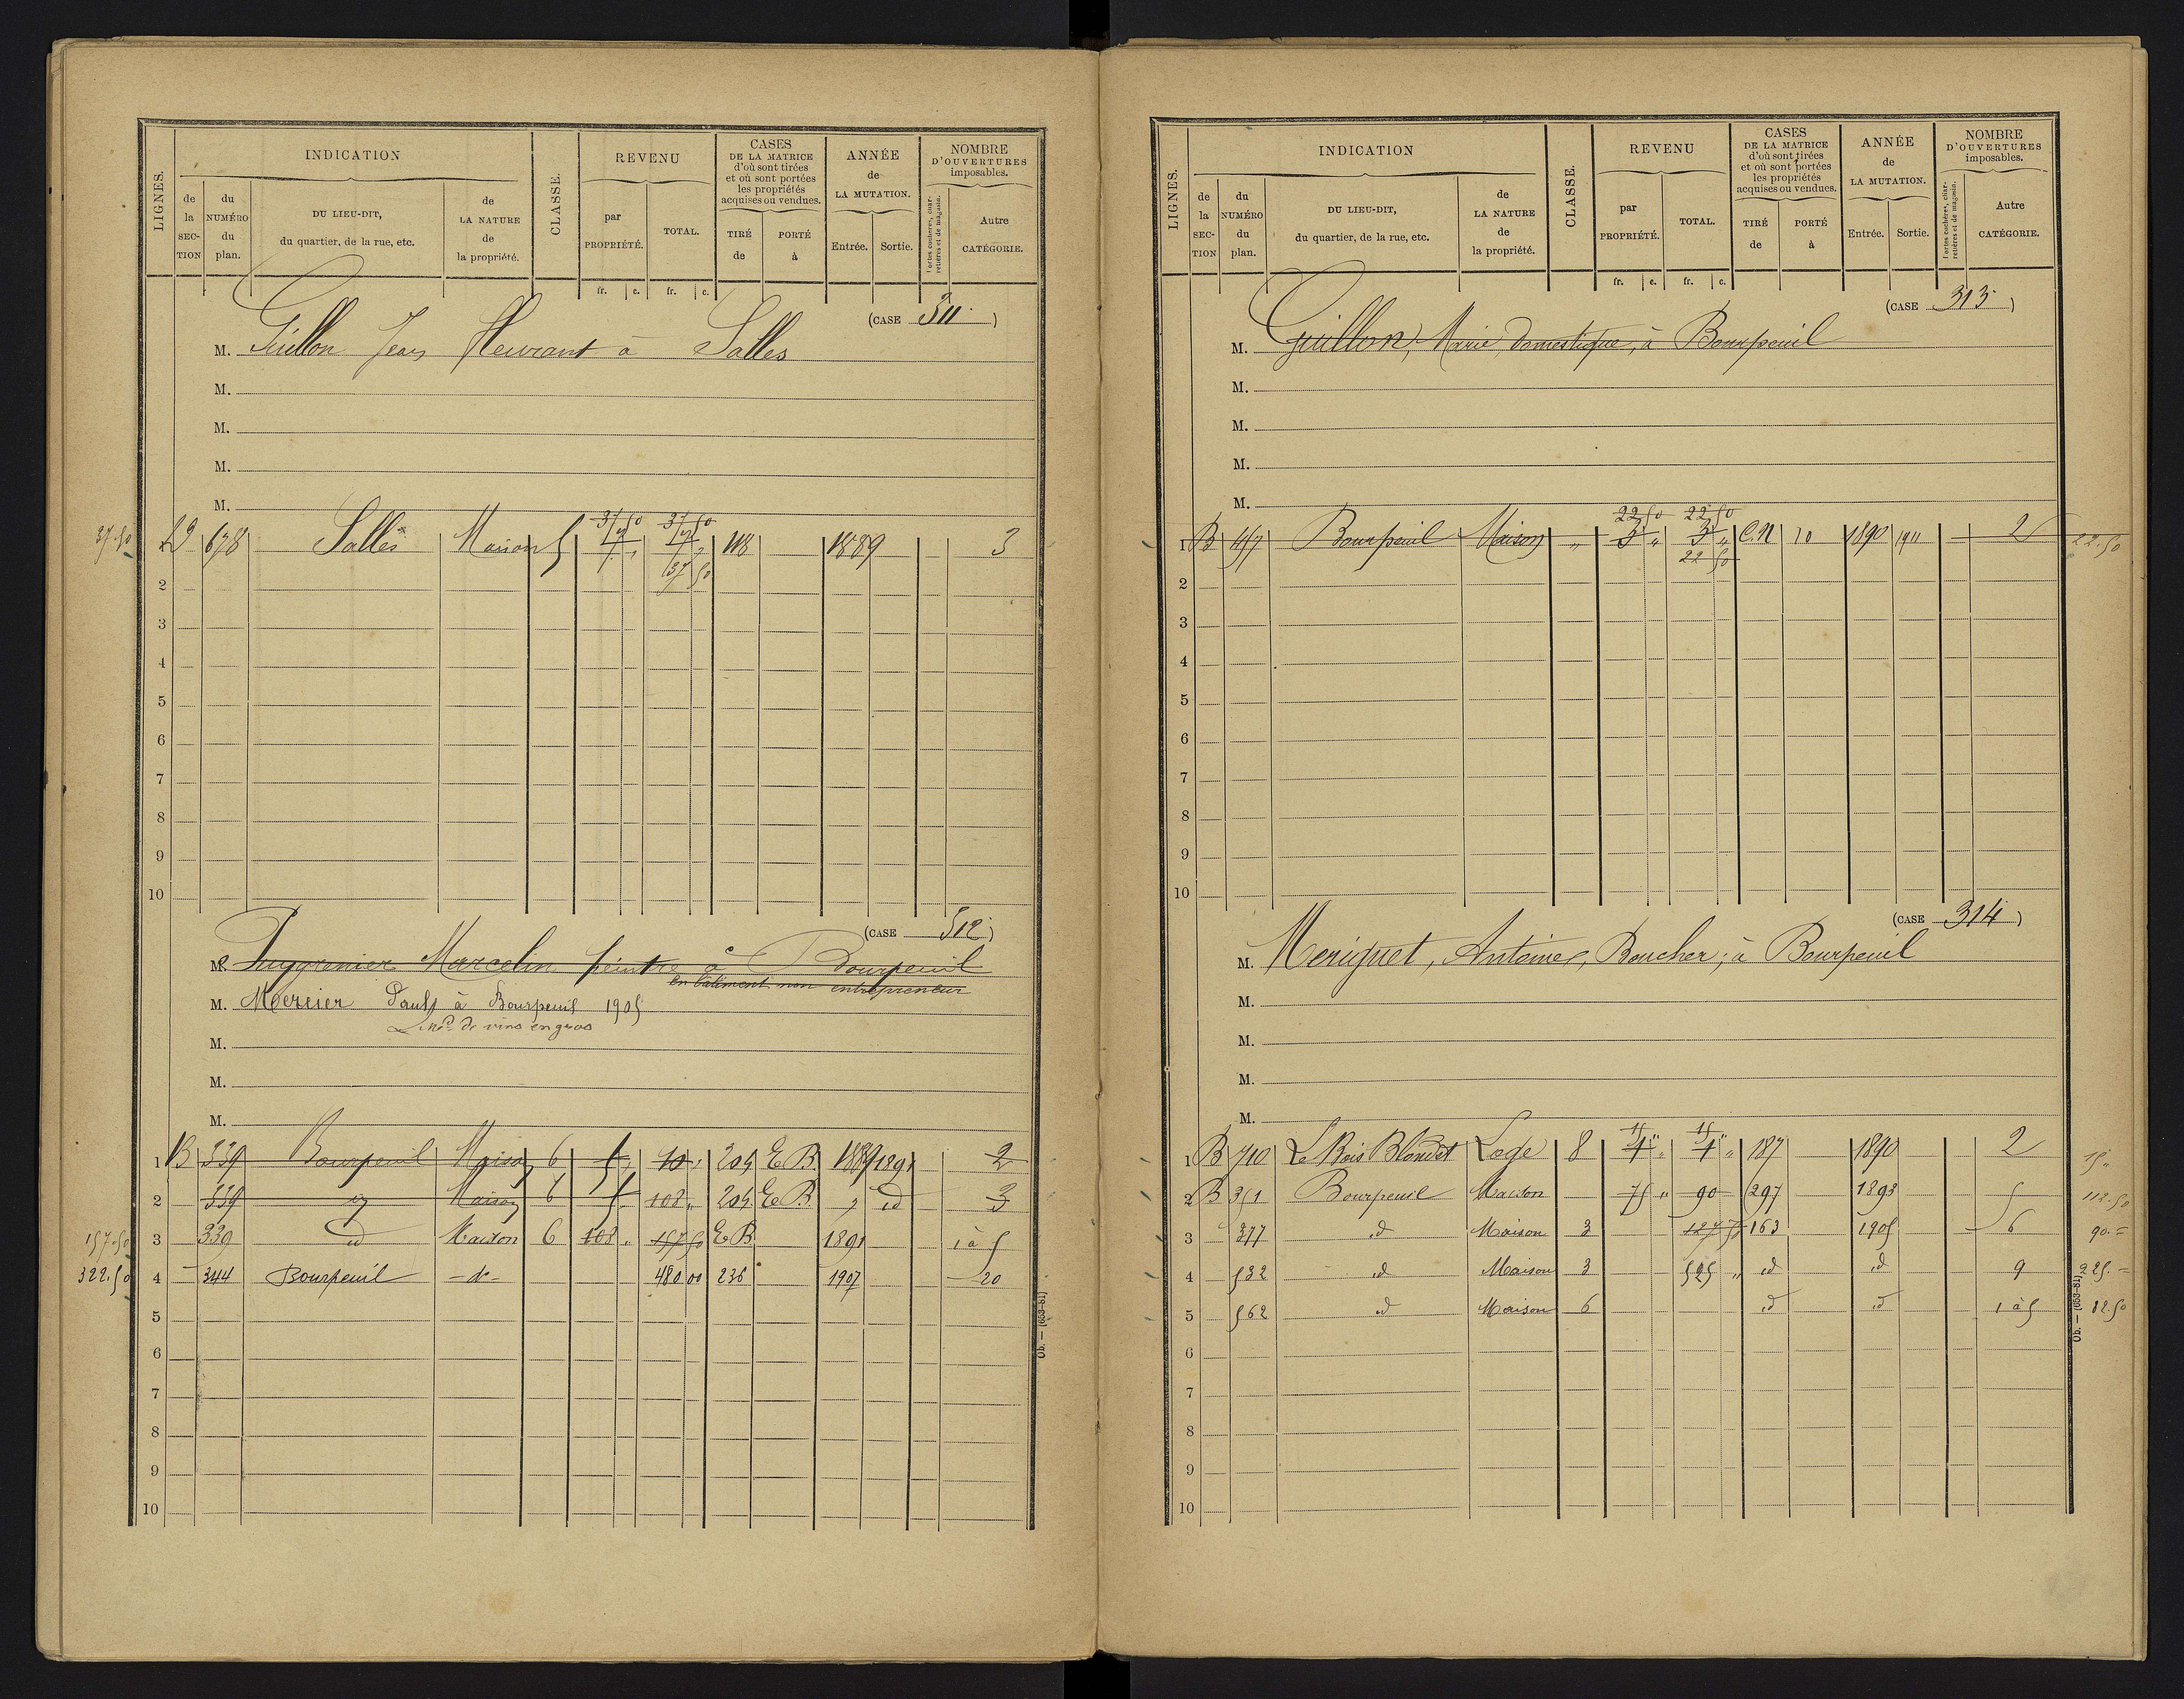 LIGNES.
INDICATION
de la SECTION
du NUMÉRO du plan.
DU LIEU-DIT, du quartier, de la rue, etc.
de LA NATURE de la propriété.
CLASSE.
REVENU
par PROPRIÉTÉ.
TOTAL.
CASES DE LA MATRICE d'où sont tirées et où sont portées les propriétés acquises ou vendues.
TIRÉ de
PORTÉ à
ANNÉE de LA MUTATION.
Entrée.
Sortie.
NOMBRE D'OUVERTURES imposables.
Portes cochères, charretières et de magasin.
Autre CATÉGORIE.
fr. c. fr. c.
(CASE 311.)
M. Guillon Jean Fleurant à Salles
M.
M.
M.
M.
37.50 37.50
37.50 1 678 Salles Maison 5 118 1889 3
37 50
2
3
4
5
6
7
8
9
10
(CASE 312)
M. Puygrenier Marcelin peintre à Bourpeuil
en bâtiment non entrepreneur
M. Mercier Paul à Bourpeuil 1905
Md de vins en gros
M.
M.
M.
1 B 339 Bourpeuil Maison 6 10 204 E B 1889 1891 2
2 339 id Maison 6 108 204 E B id 3
157.50 3 339 id Maison 6 108 157 50 E B 1891 1 à 5
322.50 4 344 Bourpeuil do 480 00 236 1907 20
5
6
7
8
9
10
Ob. — (653-81)
LIGNES.
INDICATION
de la SECTION
du NUMÉRO du plan.
DU LIEU-DIT, du quartier, de la rue, etc.
de LA NATURE de la propriété.
CLASSE.
REVENU
par PROPRIÉTÉ.
TOTAL.
CASES DE LA MATRICE d'où sont tirées et où sont portées les propriétés acquises ou vendues.
TIRÉ de
PORTÉ à
ANNÉE de LA MUTATION.
Entrée.
Sortie.
NOMBRE D'OUVERTURES imposables.
Portes cochères, charretières et de magasin.
Autre CATÉGORIE.
fr. c. fr. c.
(CASE 313)
M. Guillon, Marie, domestique, à Bourpeuil
M.
M.
M.
M.
22 50 22 50
1 B 417 Bourpeuil Maison " 3 " 3 " C.N 10 1890 1911 2 22.50
22 50
2
3
4
5
6
7
8
9
10
(CASE 314)
M. Meriguet, Antoine, Boucher, à Bourpeuil
M.
M.
M.
M.
15 " 15 "
1 B 710 Le Bois Blondet Loge 8 4 " 4 " 187 1890 2 15 "
2 B 351 Bourpeuil Maison 75 " 90 297 1893 5 112.50
3 377 id Maison 3 163 1905 6 90. =
4 532 id Maison 3 525 " id id 9 225. =
5 562 id Maison 6 id id 1 à 5 82.50
6
7
8
9
10
Ob. — (653-81)